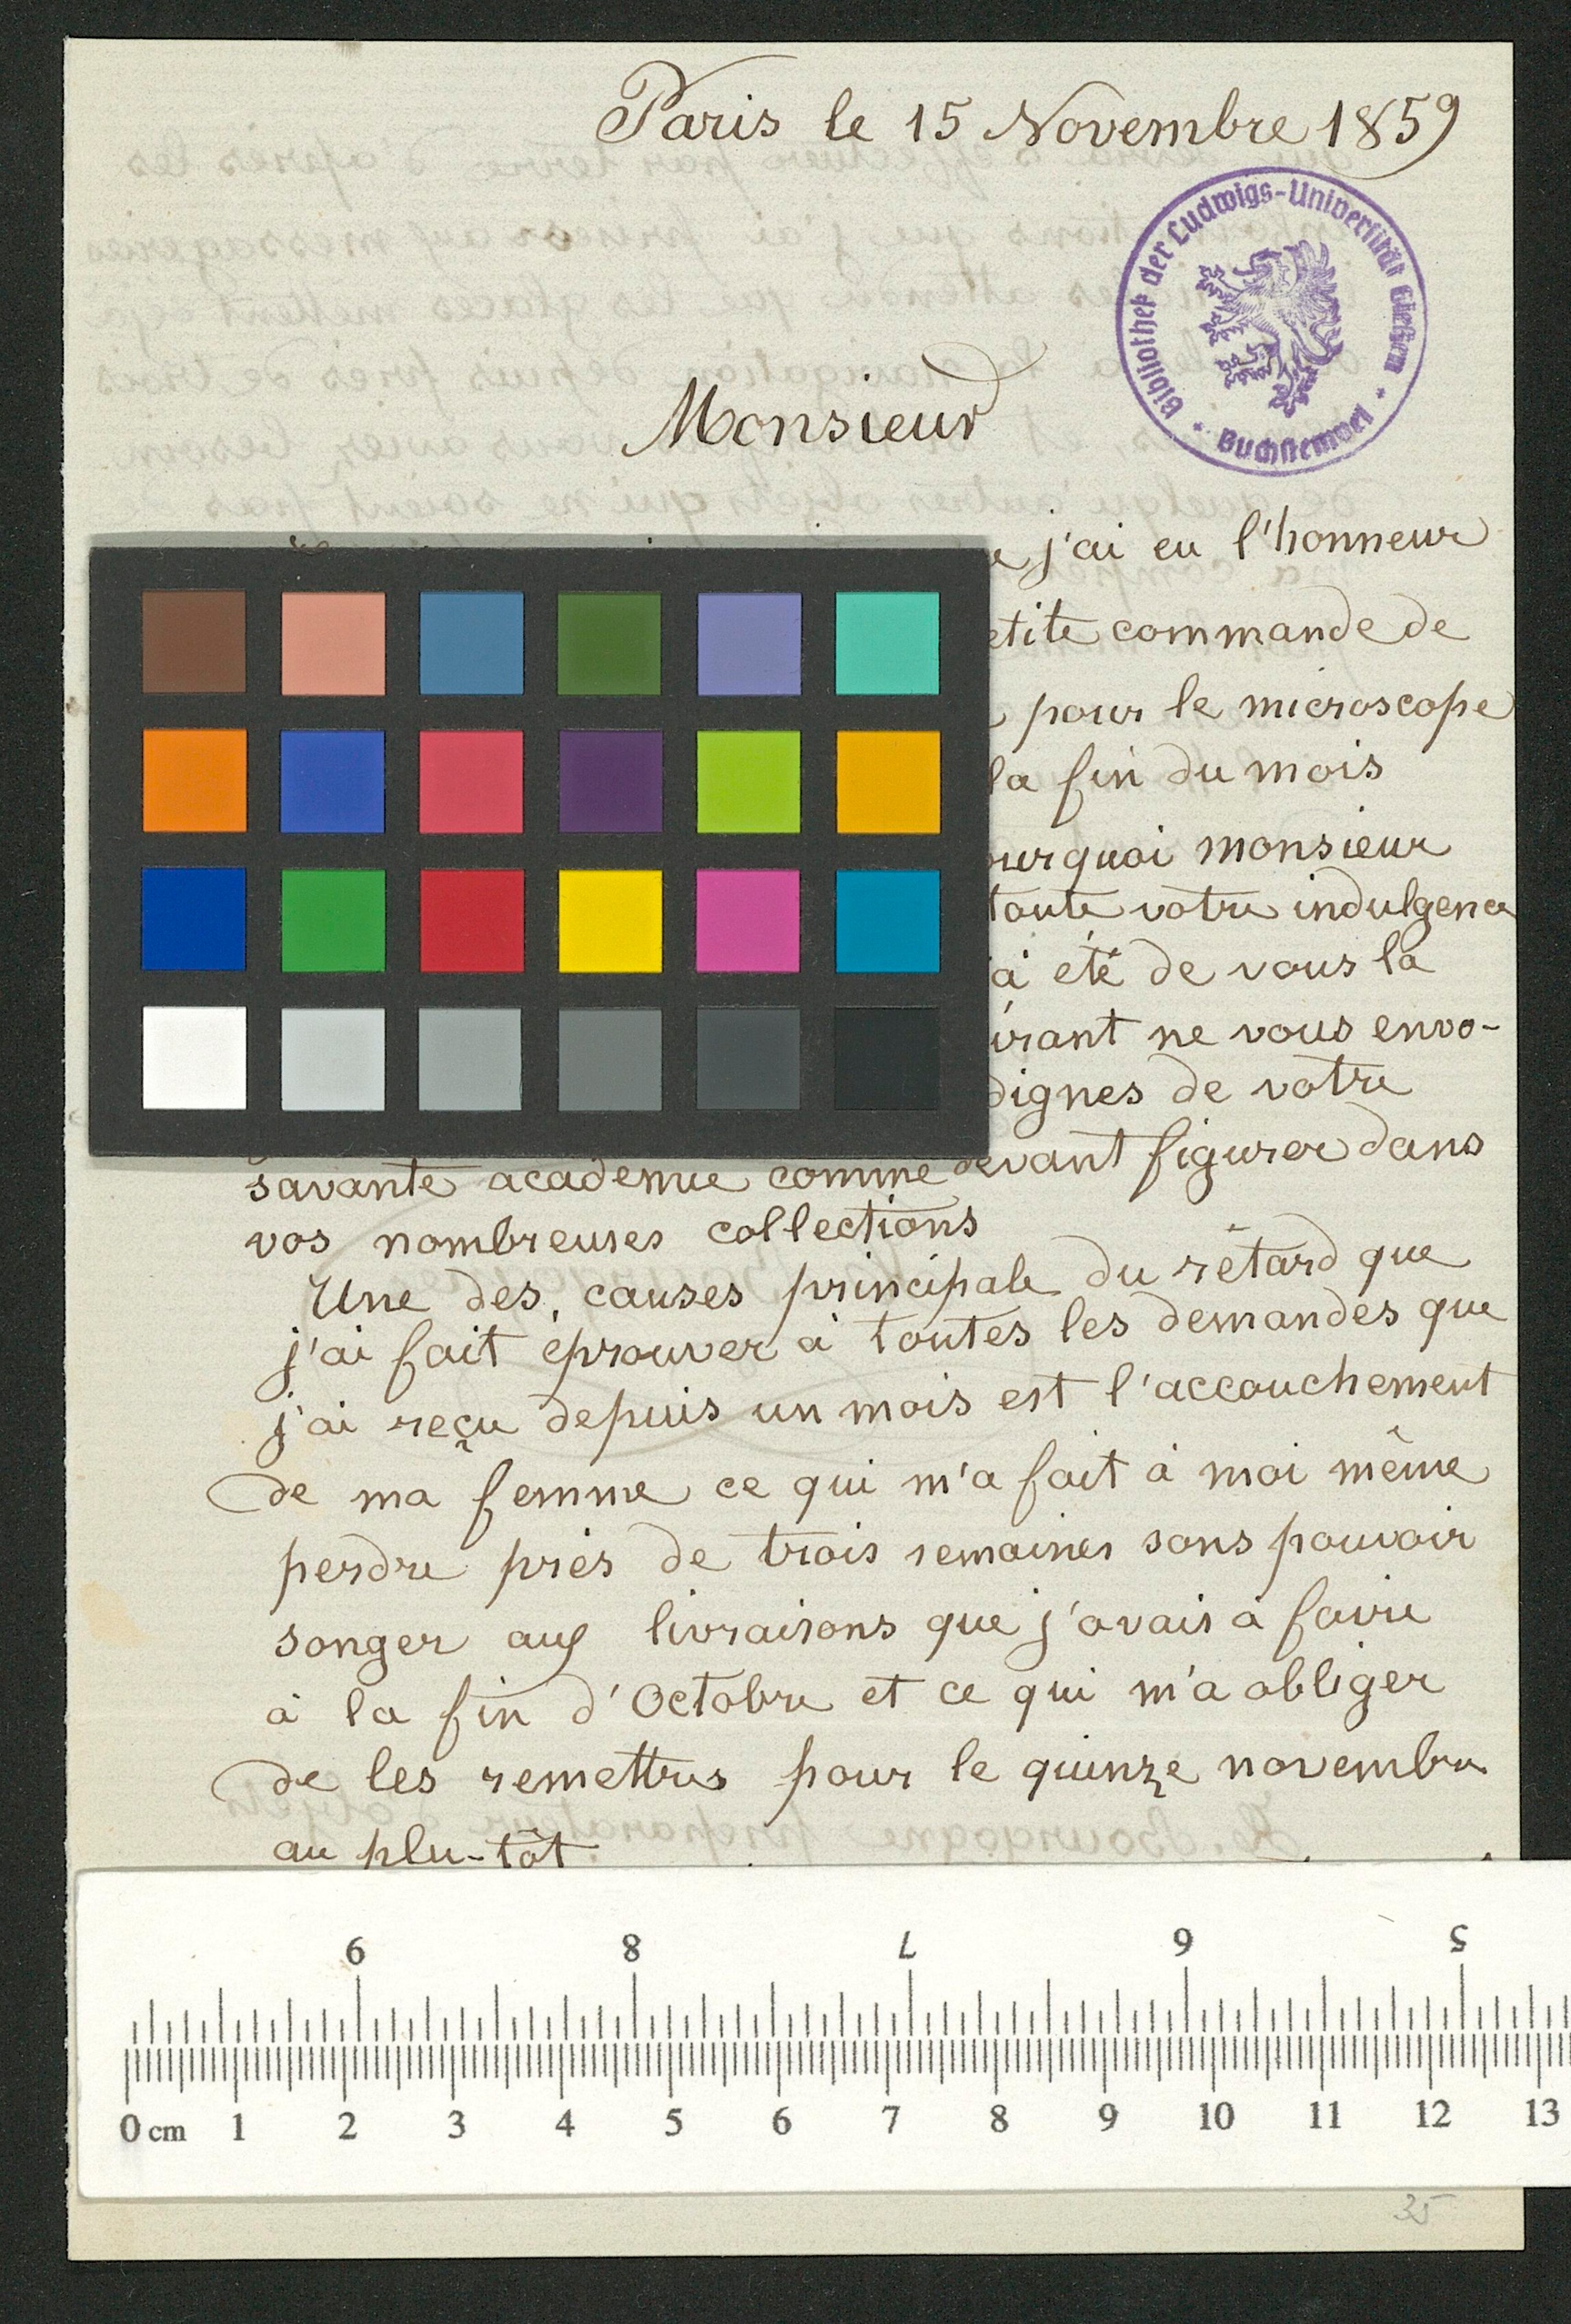 Paris le 15 Novembre 1859
Bibliothek der Ludwigs-Universität Gießen
Buchstempel
Monsieur
j'ai eu l'honneur
etite commande de
pour le microscope
la fin du mois
ourquoi monsieur
toute votre indulgence
a été de vous la
irant ne vous envo-
dignes de votre
savante academie comme devant figurer dans
vos nombreuses collections
Une des, causes principale du rétard que
j'ai fait éprouver à toutes les demandes que
j'ai reçu depuis un mois est l'accouchement
de ma femme ce qui m'a fait à moi même
perdre près de trois semaines sans pouvoir
songer aux livraisons que j'avais à faire
à la fin d'Octobre et ce qui m'a obliger
de les remettres pour le quinze novembre
au plu-tôt
9 8 7 6 5
0 cm 1 2 3 4 5 6 7 8 9 10 11 12 13
35